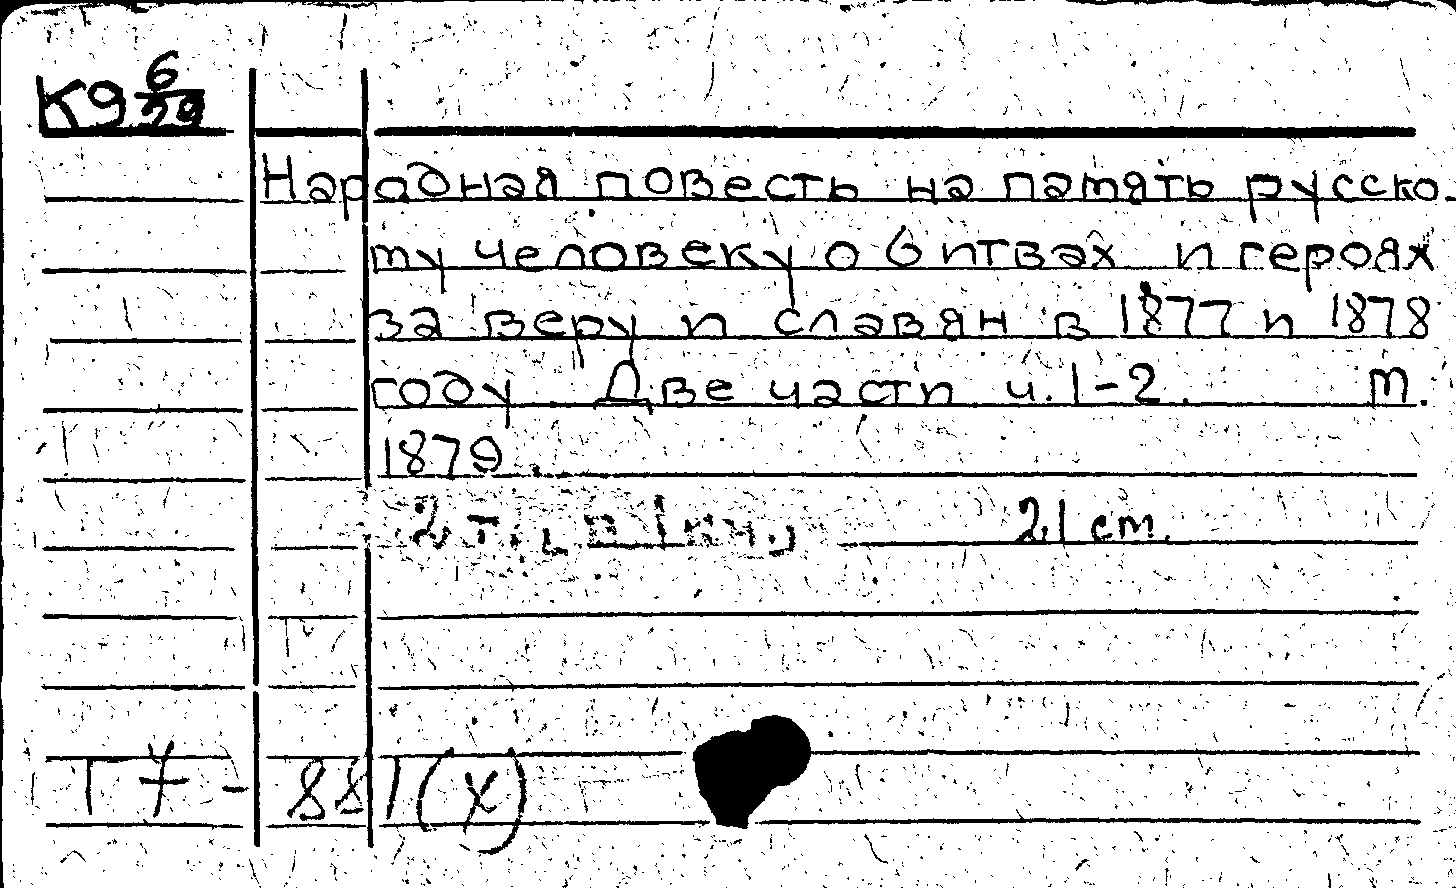 К9 6/29
Народная повесть на память русско-
му человеку о битвах и героях
за веру и славян в 1877 и 1878
году. Две части ч. 1-2. М.
1879.
2 т., в 1 кн., 21 см.
17 - 881 (х)